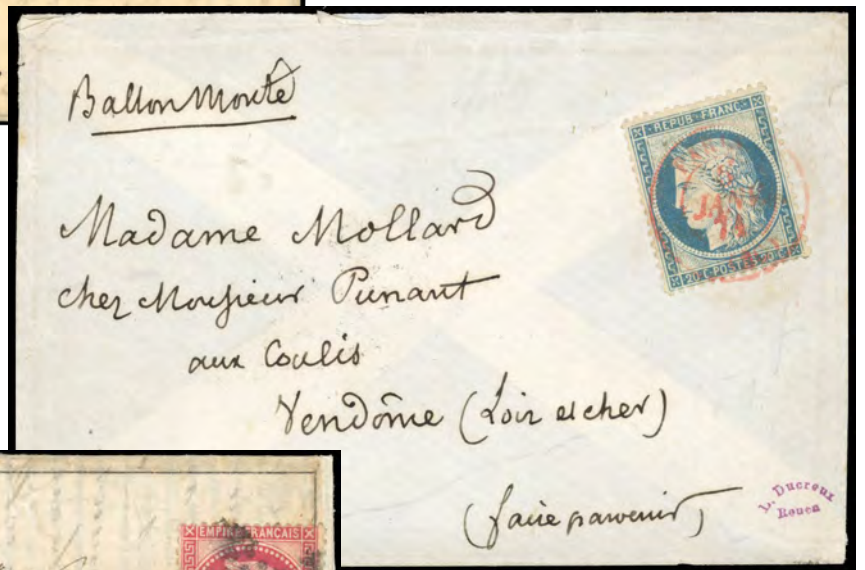 Ballon Monté
REPUB · FRANC ·
JANV
71
20 C · POSTES · 20 C
Madame Mollard
chez Monsieur Punant
aux Coulis
Vendôme (Loir et cher)
(faire parvenir)
L. Ducroux
Rouen
EMPIRE FRANCAIS